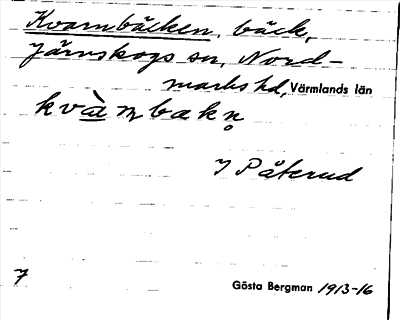 Kvarnbäcken, bäck,
Järnskogs sn, Nord-
marks hd, Värmlands län
kvà̠ɳbækn̥
I Påterud
7 Gösta Bergman 1913-16